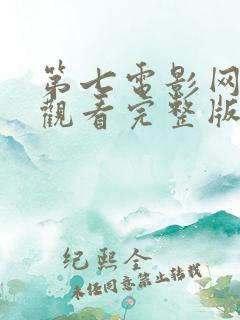 第七電影网
觀看完整版
纪熙全
未经同意禁止转载